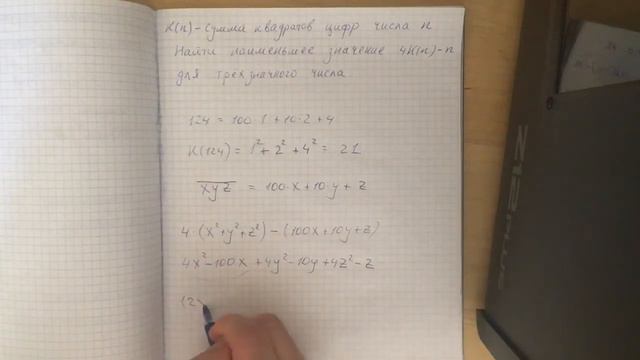 K(n) - сумма квадратов цифр числа n
Найти наименьшее значение 4K(n)-n
для трёхзначного числа
124 = 100·1 + 10·2 + 4
K(124) = 1² + 2² + 4² = 21
xyz = 100·x + 10·y + z
4·(x²+y²+z²) - (100x+10y+z)
4x²-100x + 4y²-10y + 4z²-z
(2x